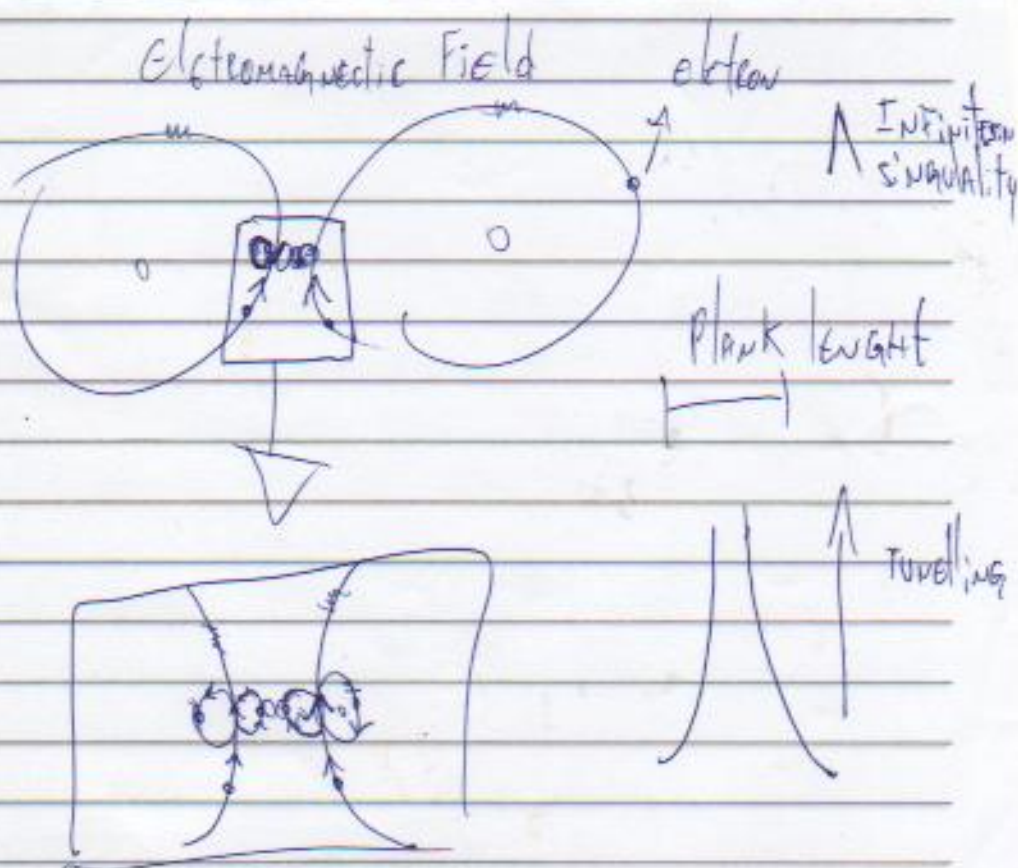 Eletromagnectic Field
eletron
Infinitesim
singulality
Plank lenght
Tunelling